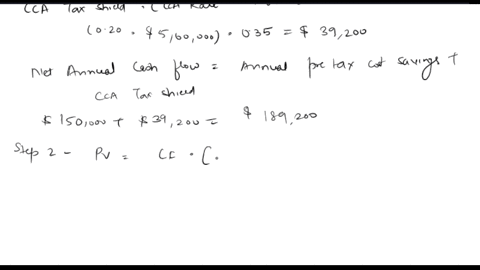 CCA Tax shield = (CCA Rate
(0.20 * $5,60,000) * 0.35 = $ 39,200
Net Annual Cash flow = Annual pretax cost savings +
CCA Tax shield
$ 150,000 + $ 39,200 = $ 189,200
Step 2 - PV = CF * [ .